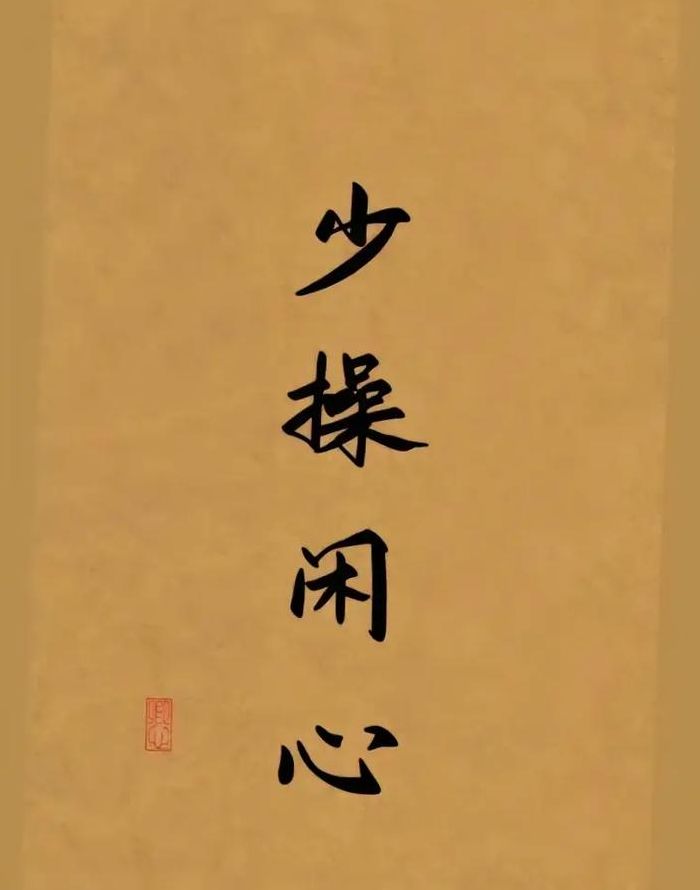 少操闲心